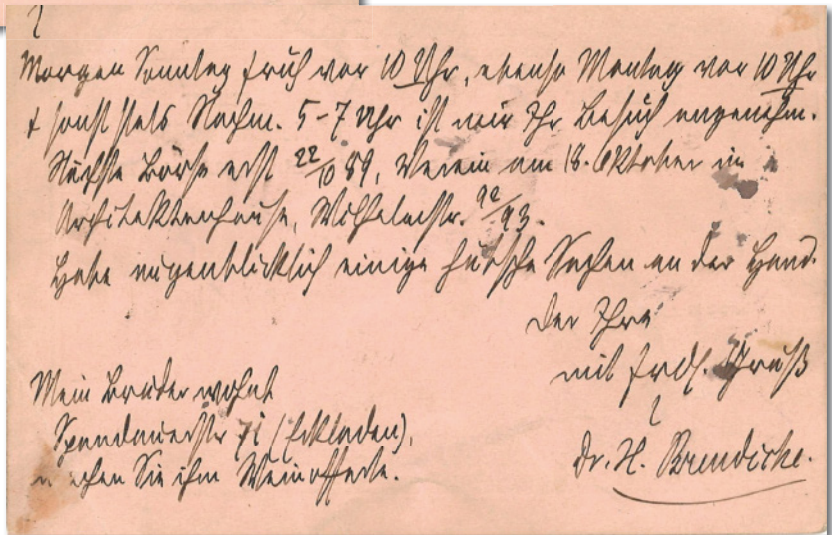 Morgen Sonntag früh vor 10 Uhr, ebenso Montag vor 10 Uhr
+ sonst stets Nachm. 5-7 Uhr ist mir Ihr Besuch angenehm.
Nächste Börse erst 22/10 89, Verein am 18. Oktober im
Architektenhause, Wilhelmstr. 92/93.
Habe augenblicklich einige hübsche Sachen an der Hand.
Der Ihre
mit frdl. Gruß
Mein Bruder wohnt
Spandauerstr 71 (Eckladen),
machen Sie ihm Weinofferte.
Dr. H. Brendicke.